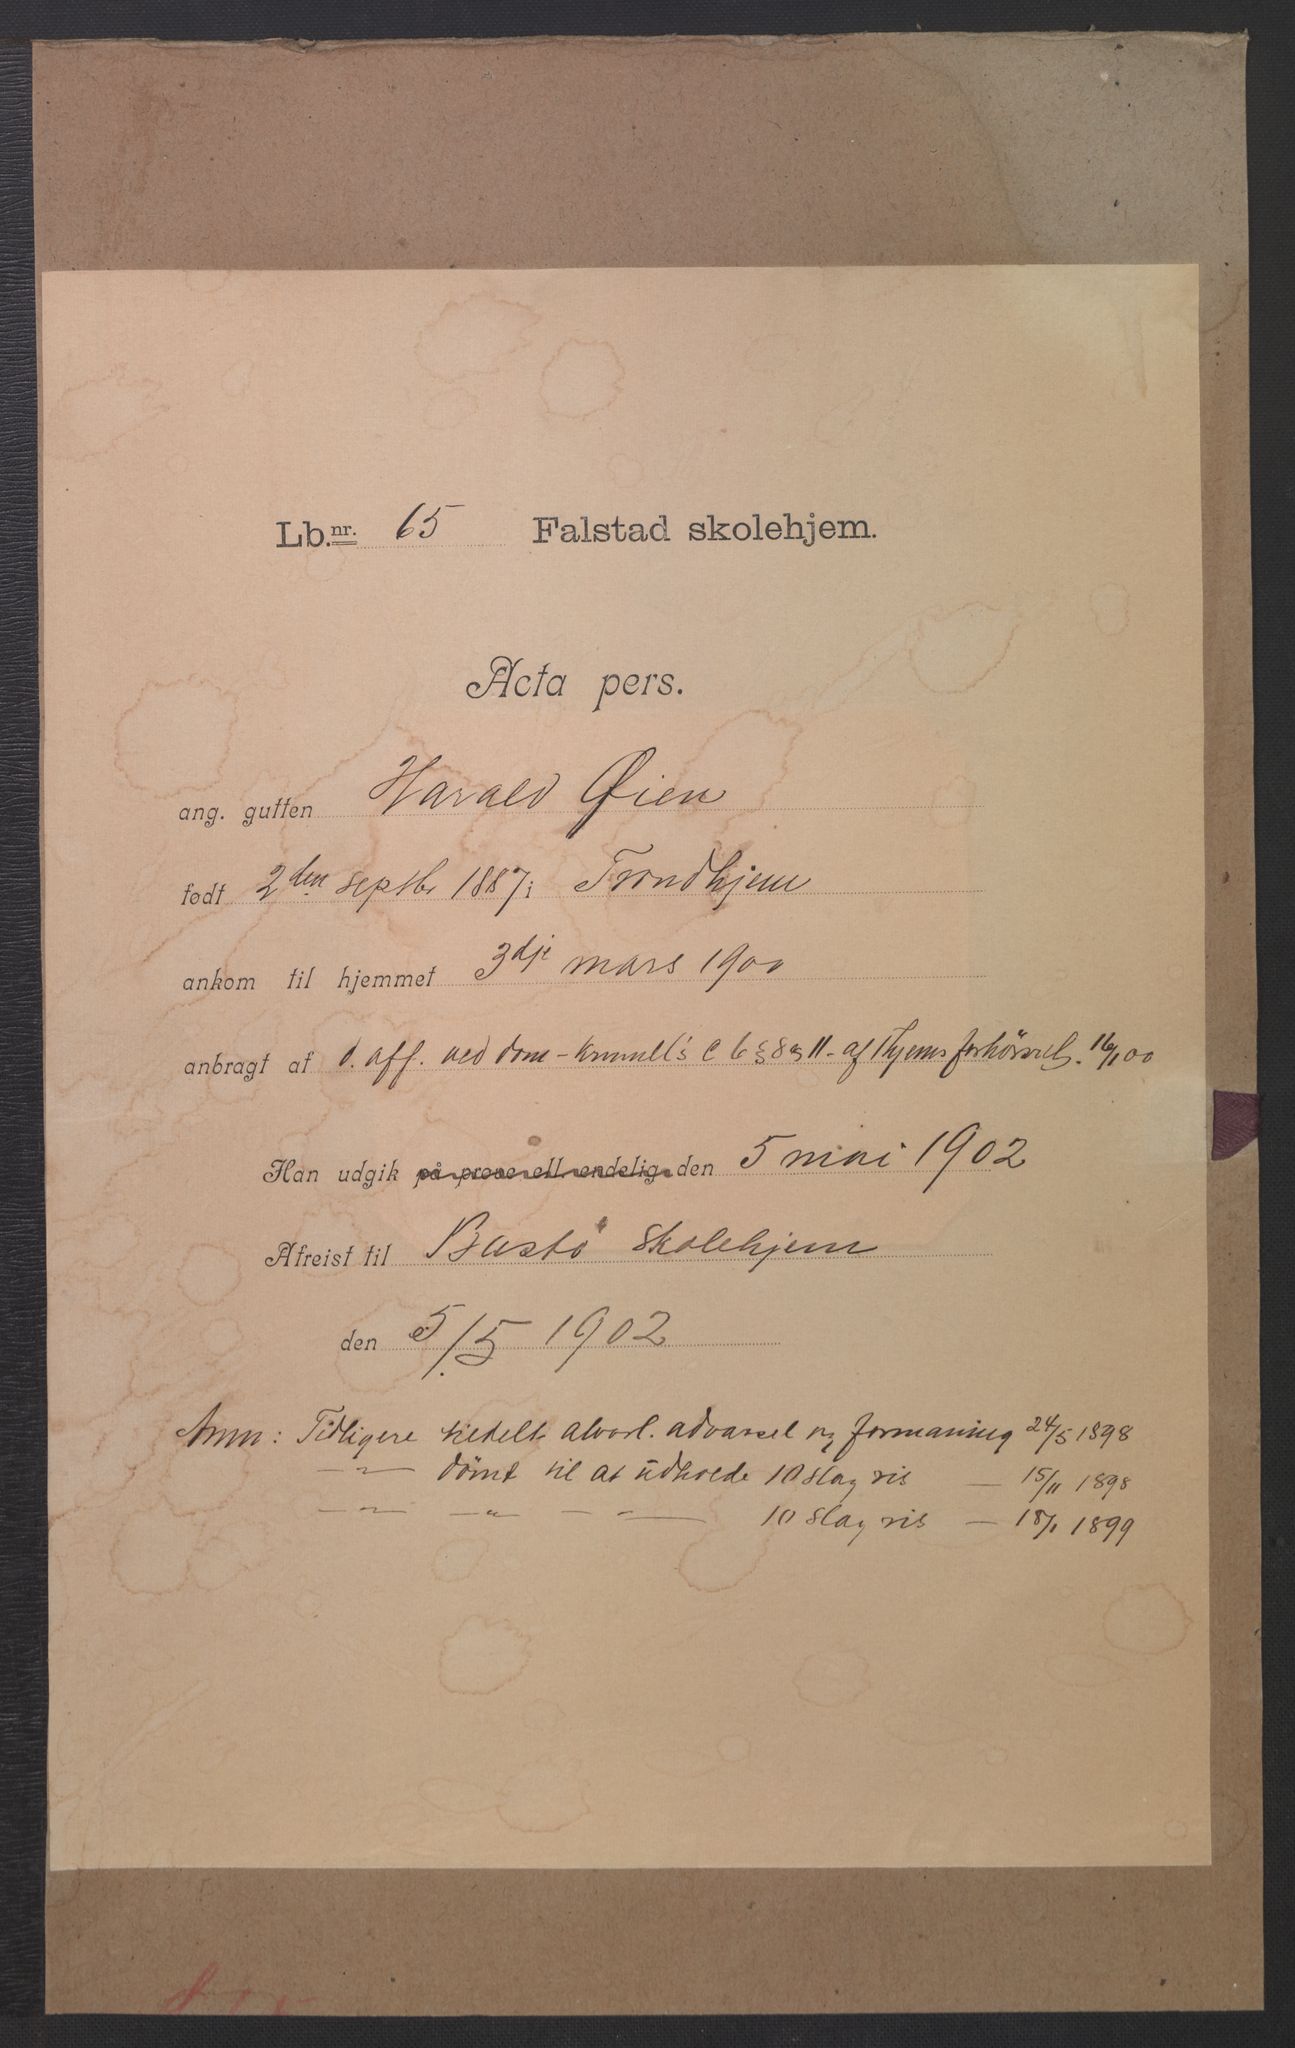 Lb.nr. 65 Falstad skolehjem.
Acta pers.
ang. gutten Harald Øien
født 2den septbr 1887 i Trondhjem
ankom til hjemmet 3dje mars 1900
anbragt af d. off. ved dom - krimll's C 6 §§ 8 og 11 - af Thjems forhörsret. 16/1 00
Han udgik på prøve ell. endelig den 5 mai 1902
Afreist til Bastö skolehjem
den 5/5 1902
Anm: Tidligere tildelt alvorl. advarsel og formaning 24/5 1898
-"- dömt til at udholde 10 slag ris — 15/11 1898
-"- -"- -"- 10 slag ris — 18/1 1899